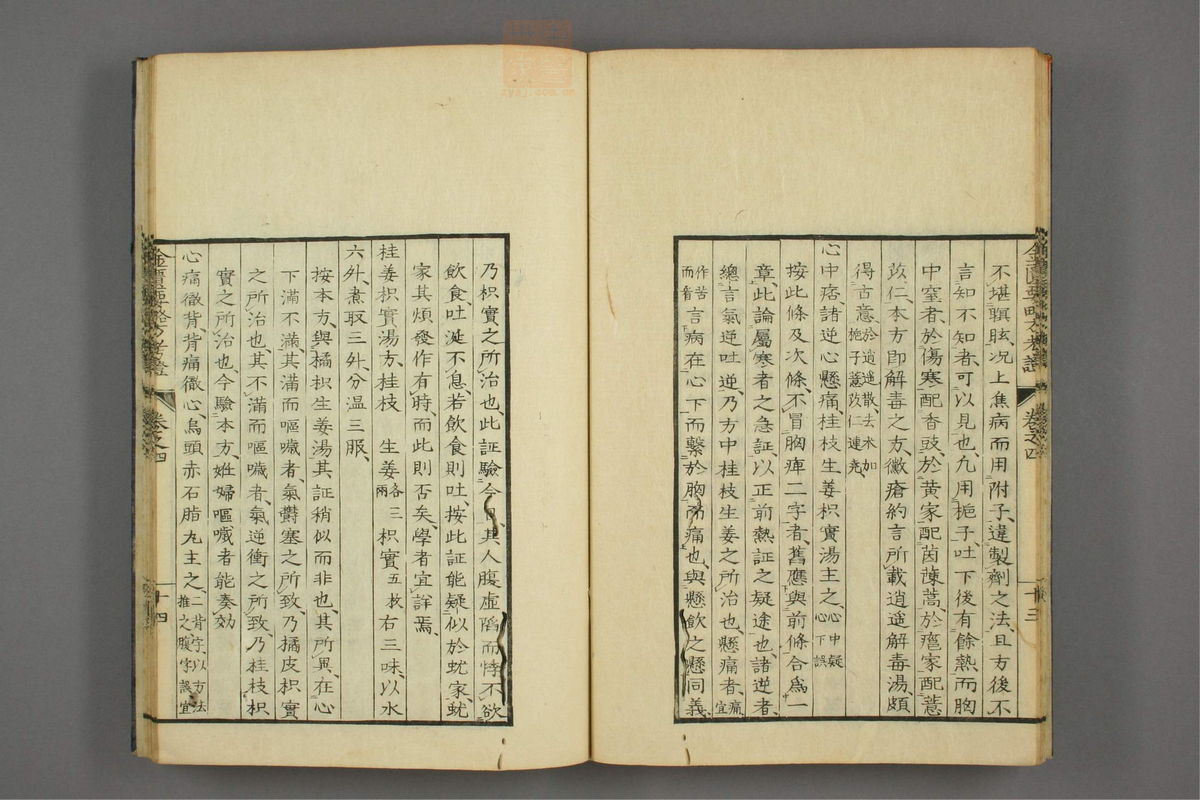 不堪瞑眩、况上焦病而用附子、違製劑之法、且方後不
言知不知者、可以見也、凢用梔子、吐下後有餘熱而胸
中窒者、於傷寒配香豉、於黄家配茵蔯蒿、於瘡家配薏
苡仁、本方即解毒之方、黴瘡約言所載逍遥解毒湯、頗
得古意、於逍遥散、去术加梔子薏苡仁連尭、
心中痞、諸逆心懸痛、桂枝生姜枳實湯主之、心中疑心下誤
按此條及次條、不冒胸痺二字者、舊應與前條合為一
章、此論屬寒者之急証、以正前熱証之疑途也、諸逆者、
總言氣逆吐逆、乃方中桂枝生姜之所治也、懸痛者、痛宜
作苦而看言病在心下而繫於胸而痛也、與懸飲之懸同義、
金匱要略方考證 卷之四 十三
乃枳實之所治也、此証驗今日、其人腹虚陷而悸、不欲
飲食、吐涎不息、若飲食則吐、按此証能疑似於蚘家、蚘
家其煩發作有時、而此則否矣、學者宜詳焉、
桂姜枳實湯方、桂枝 生姜各三兩 枳實五枚 右三味、以水
六升、煮取三升、分温三服、
按本方、與橘枳生姜湯、其証稍似而非也、其所異、在心
下滿不滿、其滿而嘔噦者、氣鬱塞之所致、乃橘皮枳實
之所治也、其不滿而嘔噦者、氣逆衝之所致、乃桂枝枳
實之所治也、今驗本方、姙婦嘔噦者能奏効
心痛徹背、背痛徹心、烏頭赤石脂丸主之、二背字、以方法推之、腹字誤、宜
金匱要略方考證 卷之四 十四